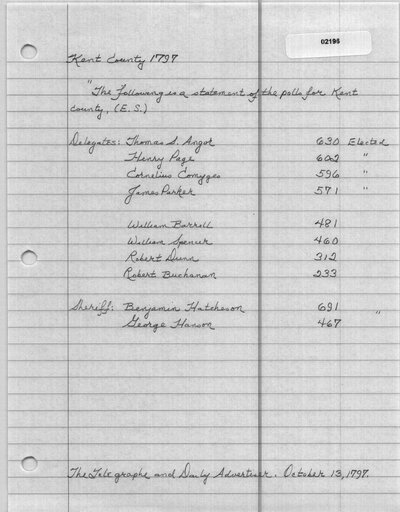 02196
Kent County 1797
"The following is a statement of the polls for Kent
county, (E.S.)
Delegates: Thomas S. Angor 630 Elected
Henry Page 602 "
Cornelius Comyges 596 "
James Parker 571 "
William Barroll 481
William Spencer 460
Robert Dunn 312
Robert Buchanan 233
Sheriff: Benjamin Hatcheson 691 "
George Hanson 467
The Telegraphe and Daily Advertiser. October 13, 1797.